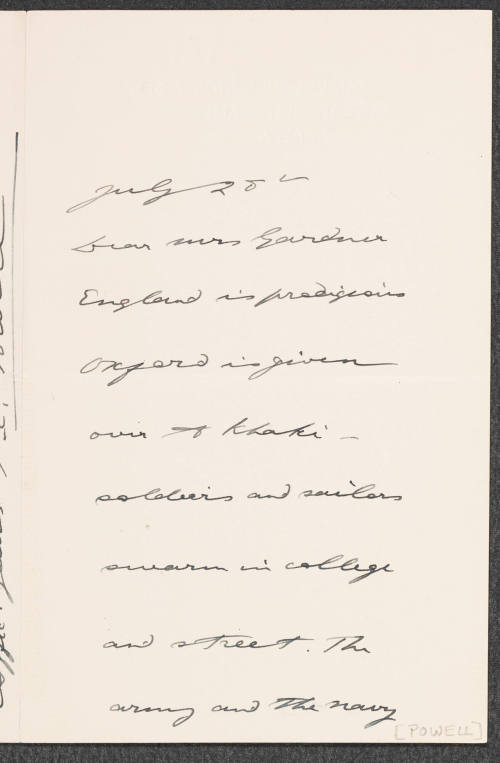 July 28th
Dear Mrs Gardner
England is prodigious
Oxford is given
over to Khaki –
soldiers and sailors
swarm in college
and street. The
army and the navy
[POWELL]